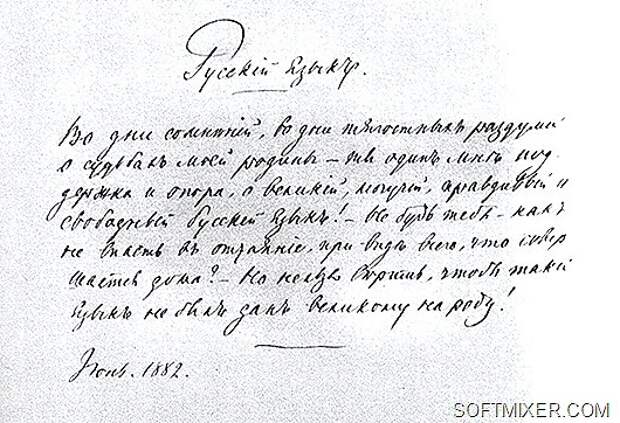 Русскій языкъ.
Во дни сомнѣній, во дни тягостныхъ раздумій
о судьбахъ моей родины – ты одинъ мнѣ под
держка и опора, о великій, могучій, правдивый и
свободный Русскій языкъ! – Не будь тебя – какъ
не впасть въ отчаяніе, при видѣ всего, что совер
шается дома? – Но нельзя вѣрить, чтобы такой
языкъ не былъ данъ великому народу!
Іюнь. 1882.
SOFTMIXER.COM